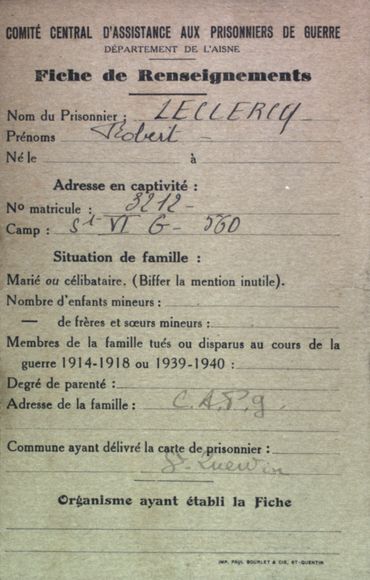 COMITÉ CENTRAL D'ASSISTANCE AUX PRISONNIERS DE GUERRE
DÉPARTEMENT DE L'AISNE
Fiche de Renseignements
Nom du Prisonnier : LECLERCQ
Prénoms Robert -
Né le à
Adresse en captivité :
No matricule : 3212 -
Camp : St VI G - 560
Situation de famille :
Marié ou célibataire. (Biffer la mention inutile).
Nombre d'enfants mineurs :
— de frères et sœurs mineurs :
Membres de la famille tués ou disparus au cours de la
guerre 1914-1918 ou 1939-1940 :
Degré de parenté :
Adresse de la famille : C.A.P.g.
Commune ayant délivré la carte de prisonnier :
St. Quentin
Organisme ayant établi la Fiche
IMP. PAUL BOURLET & CIE, ST-QUENTIN